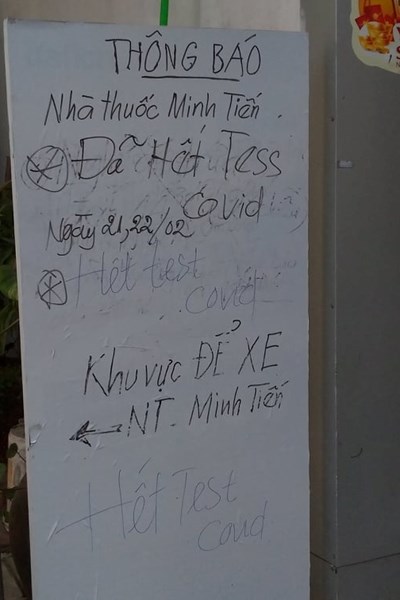 THÔNG BÁO
Nhà thuốc Minh Tiến.
Đã Hết Tess
Covid
Ngày 21, 22/02
Hết test
covid
Khu vực ĐỂ XE
← NT. Minh Tiến
Hết Test
covid